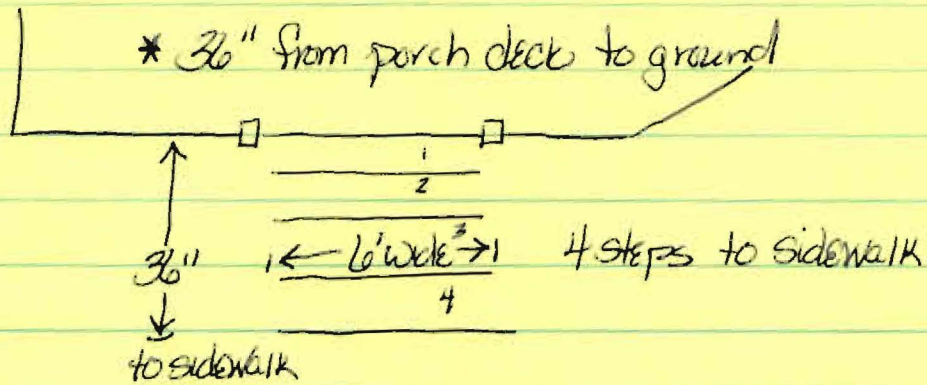 * 36" from porch deck to ground
1
2
36" 6' wide 3 4 steps to sidewalk
4
to sidewalk